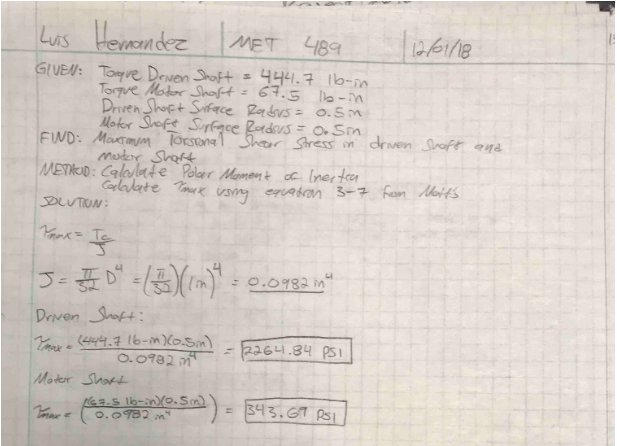 Luis Hernandez MET 489 12/01/18
GIVEN: Torque Driven Shaft = 444.7 lb-in
Torque Motor Shaft = 67.5 lb-in
Driven Shaft Surface Radius = 0.5in
Motor Shaft Surface Radius = 0.5in
FIND: Maximum Torsional Shear Stress in driven shaft and
motor shaft
METHOD: Calculate Polar Moment of Inertia
Calculate τmax using equation 3-7 from Mott's
SOLUTION:
τmax = Tc/J
J = π/32 D⁴ = (π/32)(1in)⁴ = 0.0982 in⁴
Driven Shaft:
τmax = (444.7 lb-in)(0.5in)/0.0982 in⁴ = 2264.84 PSI
Motor Shaft
τmax = ((67.5 lb-in)(0.5in)/0.0982 in⁴) = 343.69 PSI